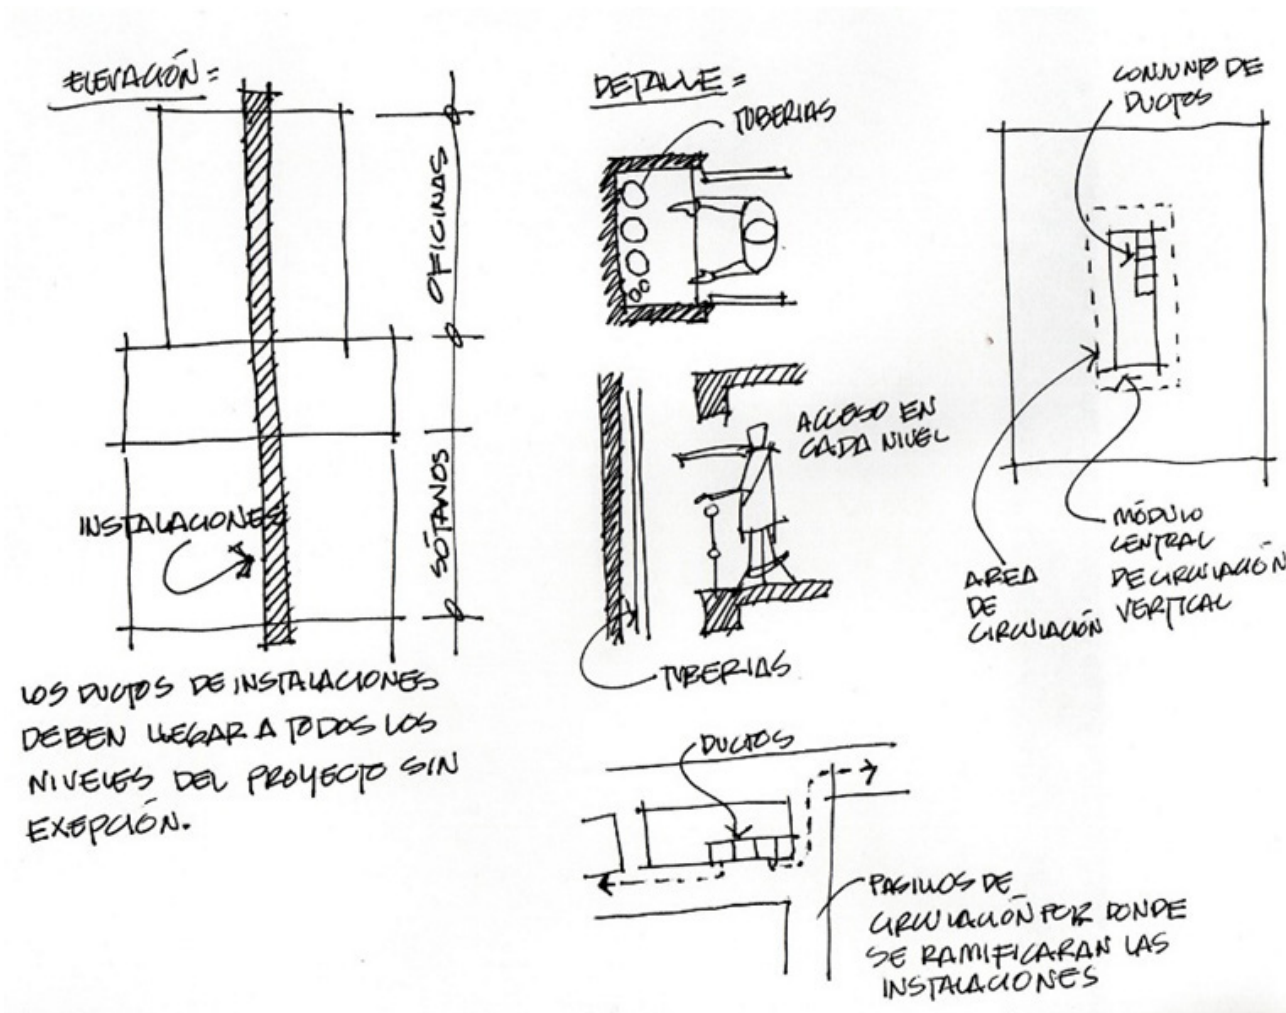 ELEVACIÓN =
OFICINAS
SÓTANOS
INSTALACIONES
LOS DUCTOS DE INSTALACIONES
DEBEN LLEGAR A TODOS LOS
NIVELES DEL PROYECTO SIN
EXEPCIÓN.
DETALLE =
TUBERIAS
ACCESO EN
CADA NIVEL
TUBERIAS
DUCTOS
PASILLOS DE
CIRCULACIÓN POR DONDE
SE RAMIFICARAN LAS
INSTALACIONES
CONJUNTO DE
DUCTOS
AREA
DE
CIRCULACIÓN
MÓDULO
CENTRAL
DE CIRCULACIÓN
VERTICAL